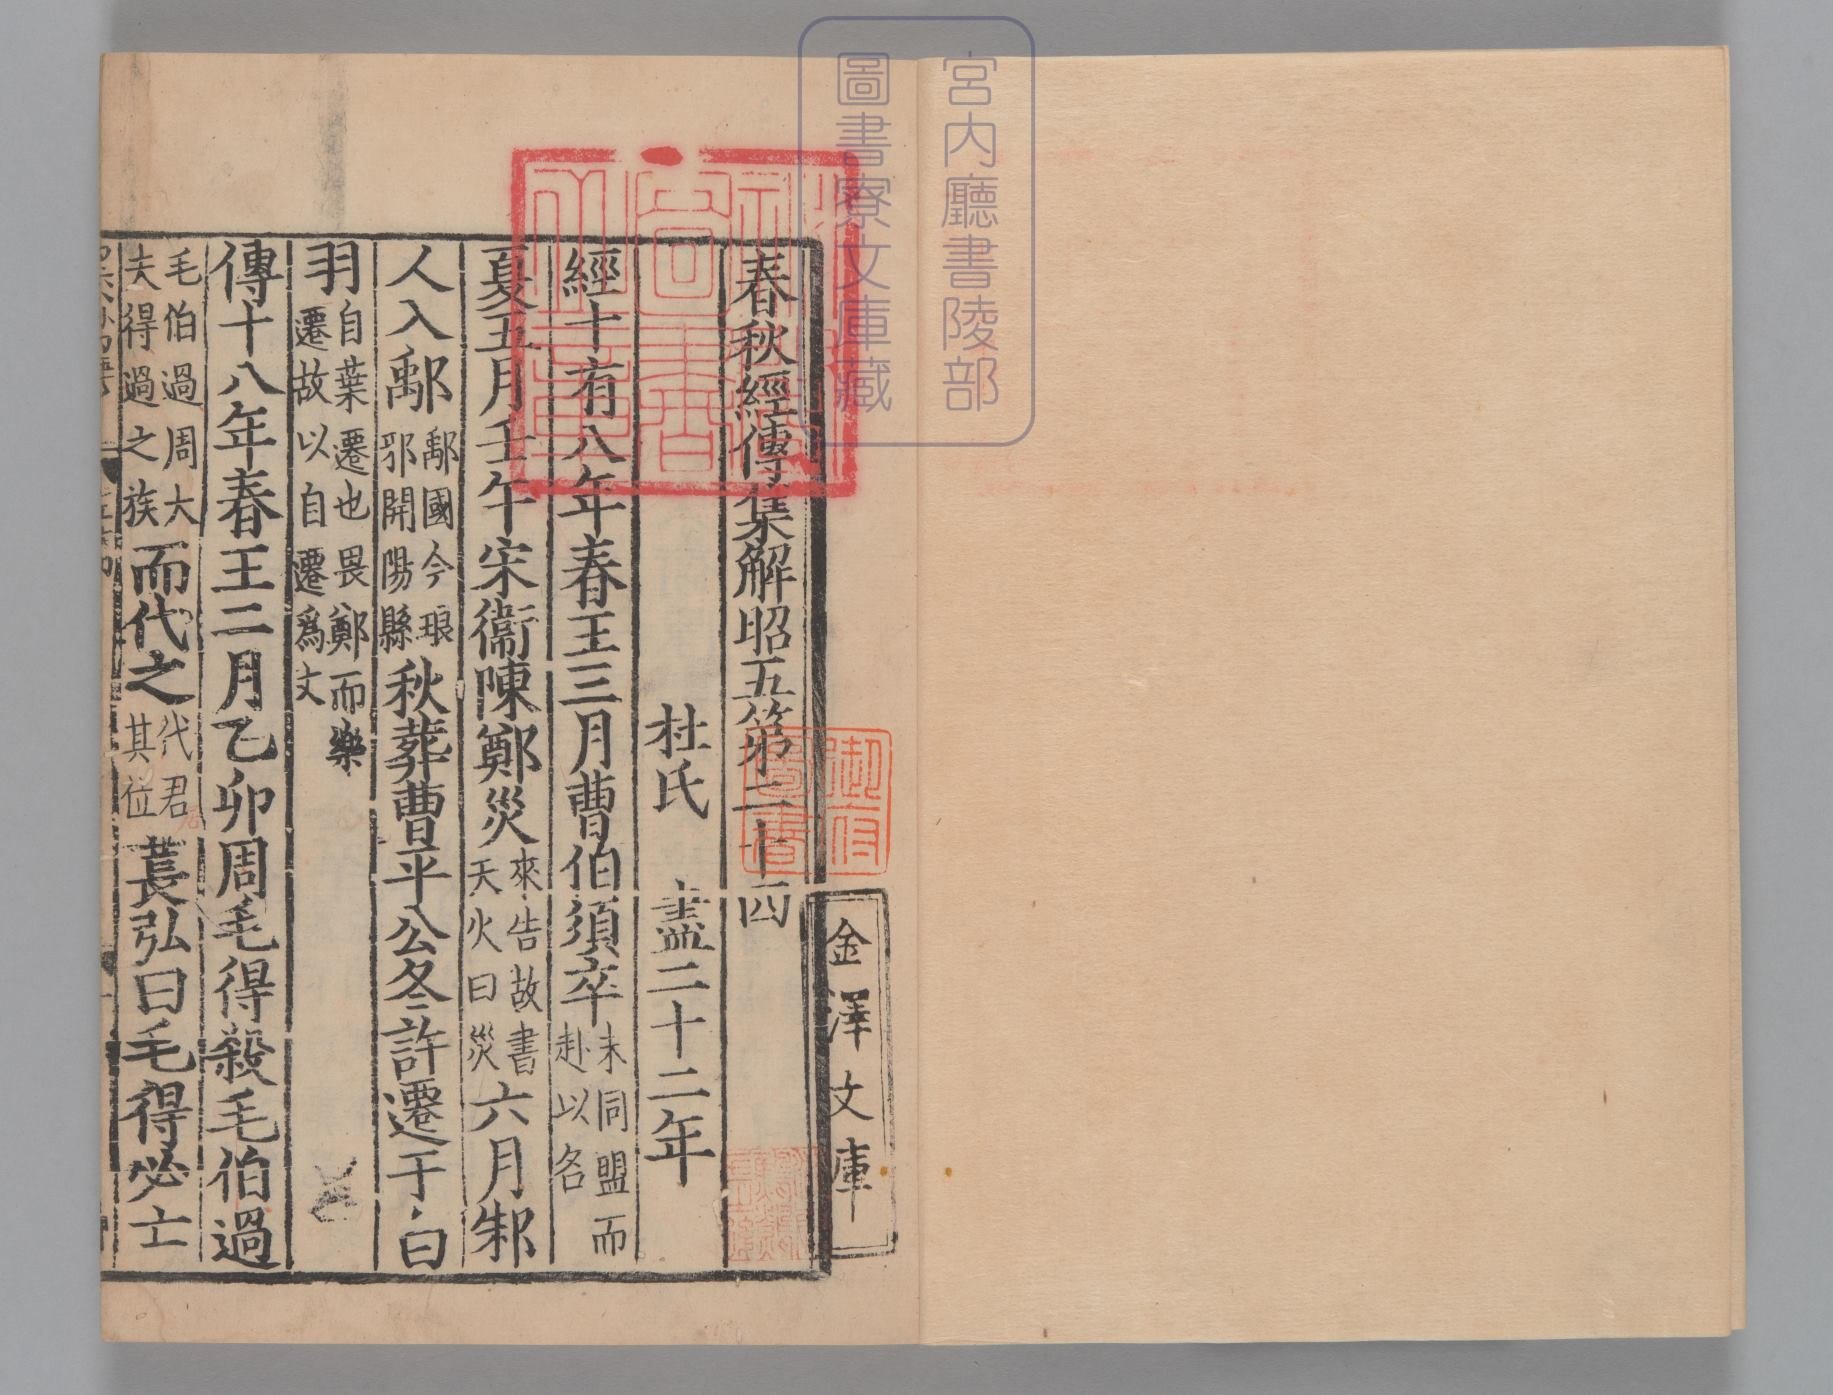 宮内廳書陵部
圖書寮文庫藏
金澤文庫
御府
圖書
秘閣
圖書
之章
春秋經傳集解昭五第二十四
杜氏　盡二十二年
經十有八年春王三月曹伯須卒未同盟而赴以名
夏五月壬午宋衞陳鄭災來告故書天火曰災六月邾
人入鄅鄅國今琅邪開陽縣秋葬曹平公冬許遷于白
羽自葉遷也畏鄭而樂遷故以自遷爲文
傳十八年春王二月乙卯周毛得殺毛伯過
毛伯過周大夫得過之族而代之代君其位萇弘曰毛得必亡